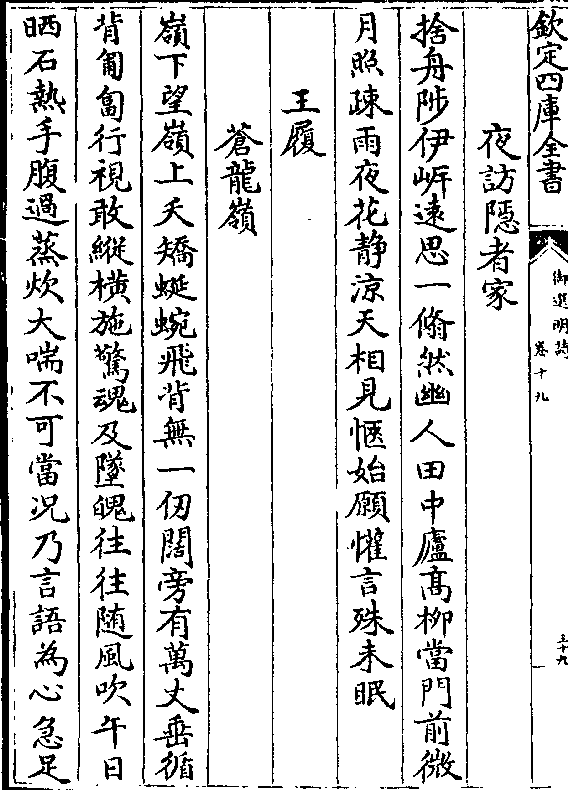 欽定四庫全書
御選明詩
卷十九
三十九
夜訪隱者家
捨舟陟伊岸遠思一翛然幽人田中廬高柳當門前微
月照疎雨夜花静涼天相見愜始願懽言殊未眠
王履
蒼龍嶺
嶺下望嶺上夭矯蜒蜿飛背無一仞闊旁有萬丈垂循
背匍匐行視敢縱橫施驚魂及墜魄往往随風吹午日
晒石熱手腹過蒸炊大喘不可當况乃言語為心急足